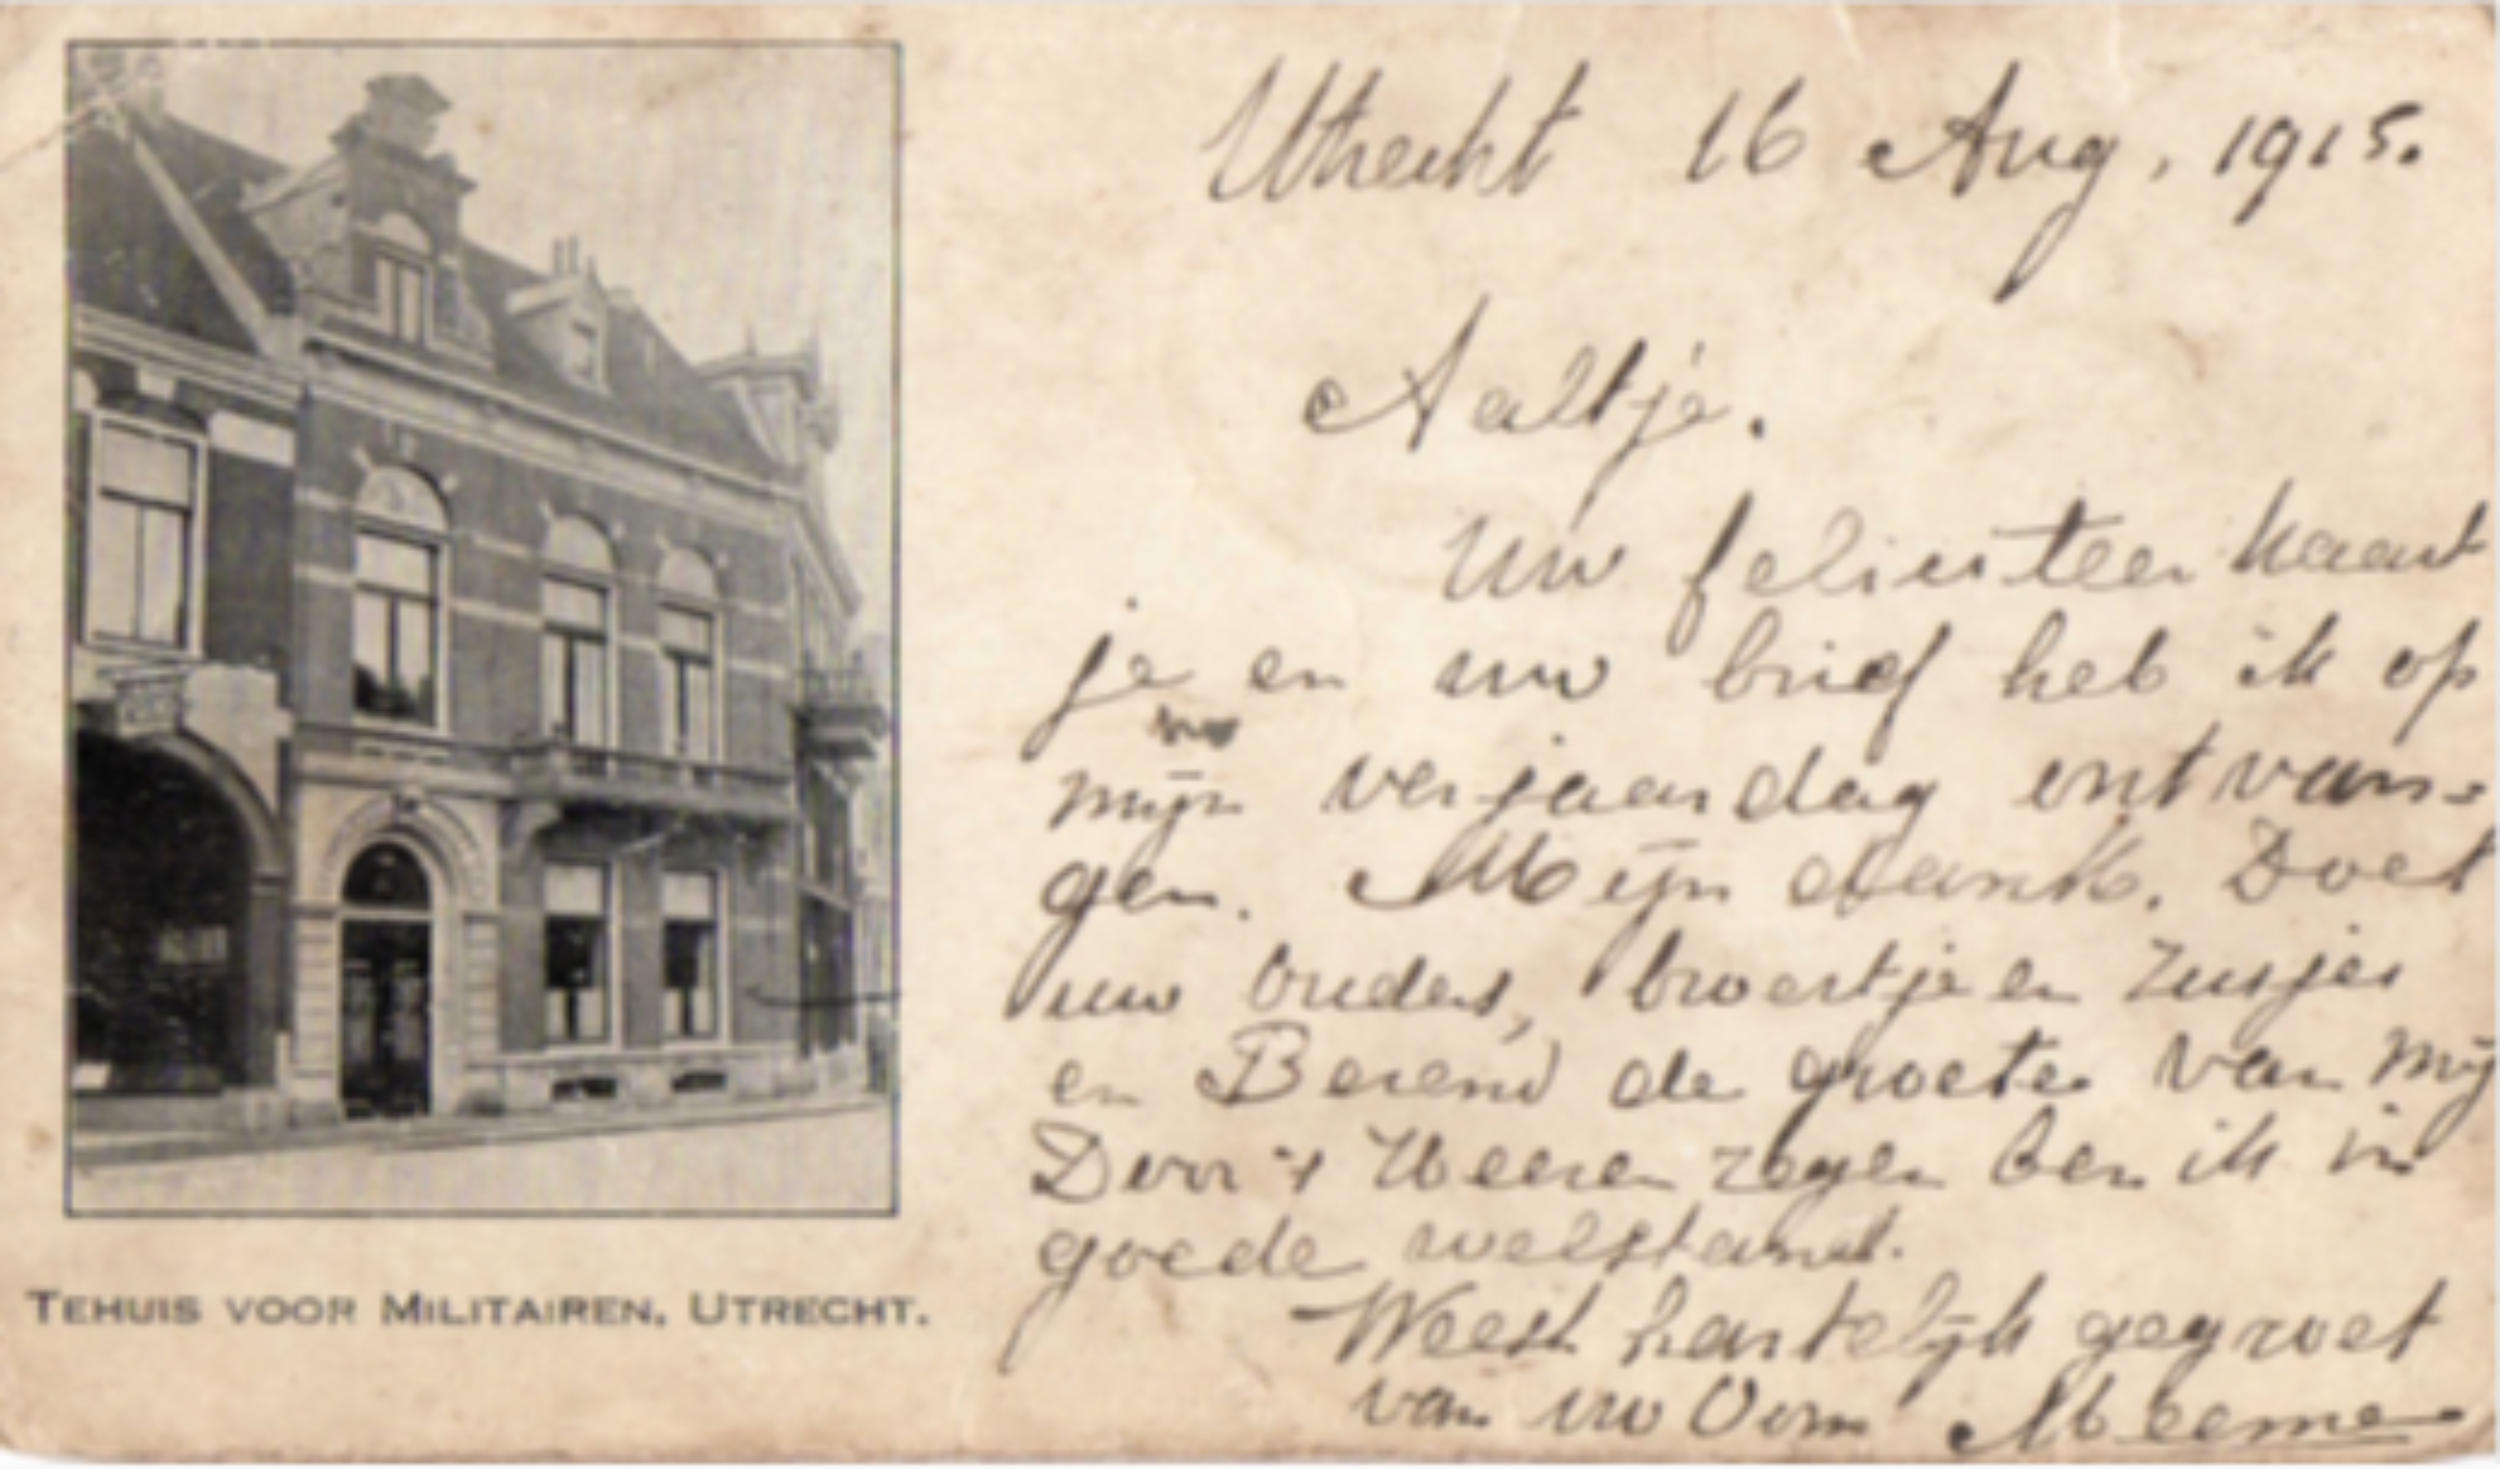 Utrecht 16 Aug, 1915.
Aaltje.
Uw feliciteer kaart
je en uw brief heb ik op
mijn verjaardag ontvan-
gen. Mijn dank. Doet
uw ouders, broertje en zusjes
en Berend de groete van mij
Door 's Heeren zegen ben ik in
goede welstand.
Weest hartelijk gegroet
van uw Oom
TEHUIS VOOR MILITAIREN, UTRECHT.